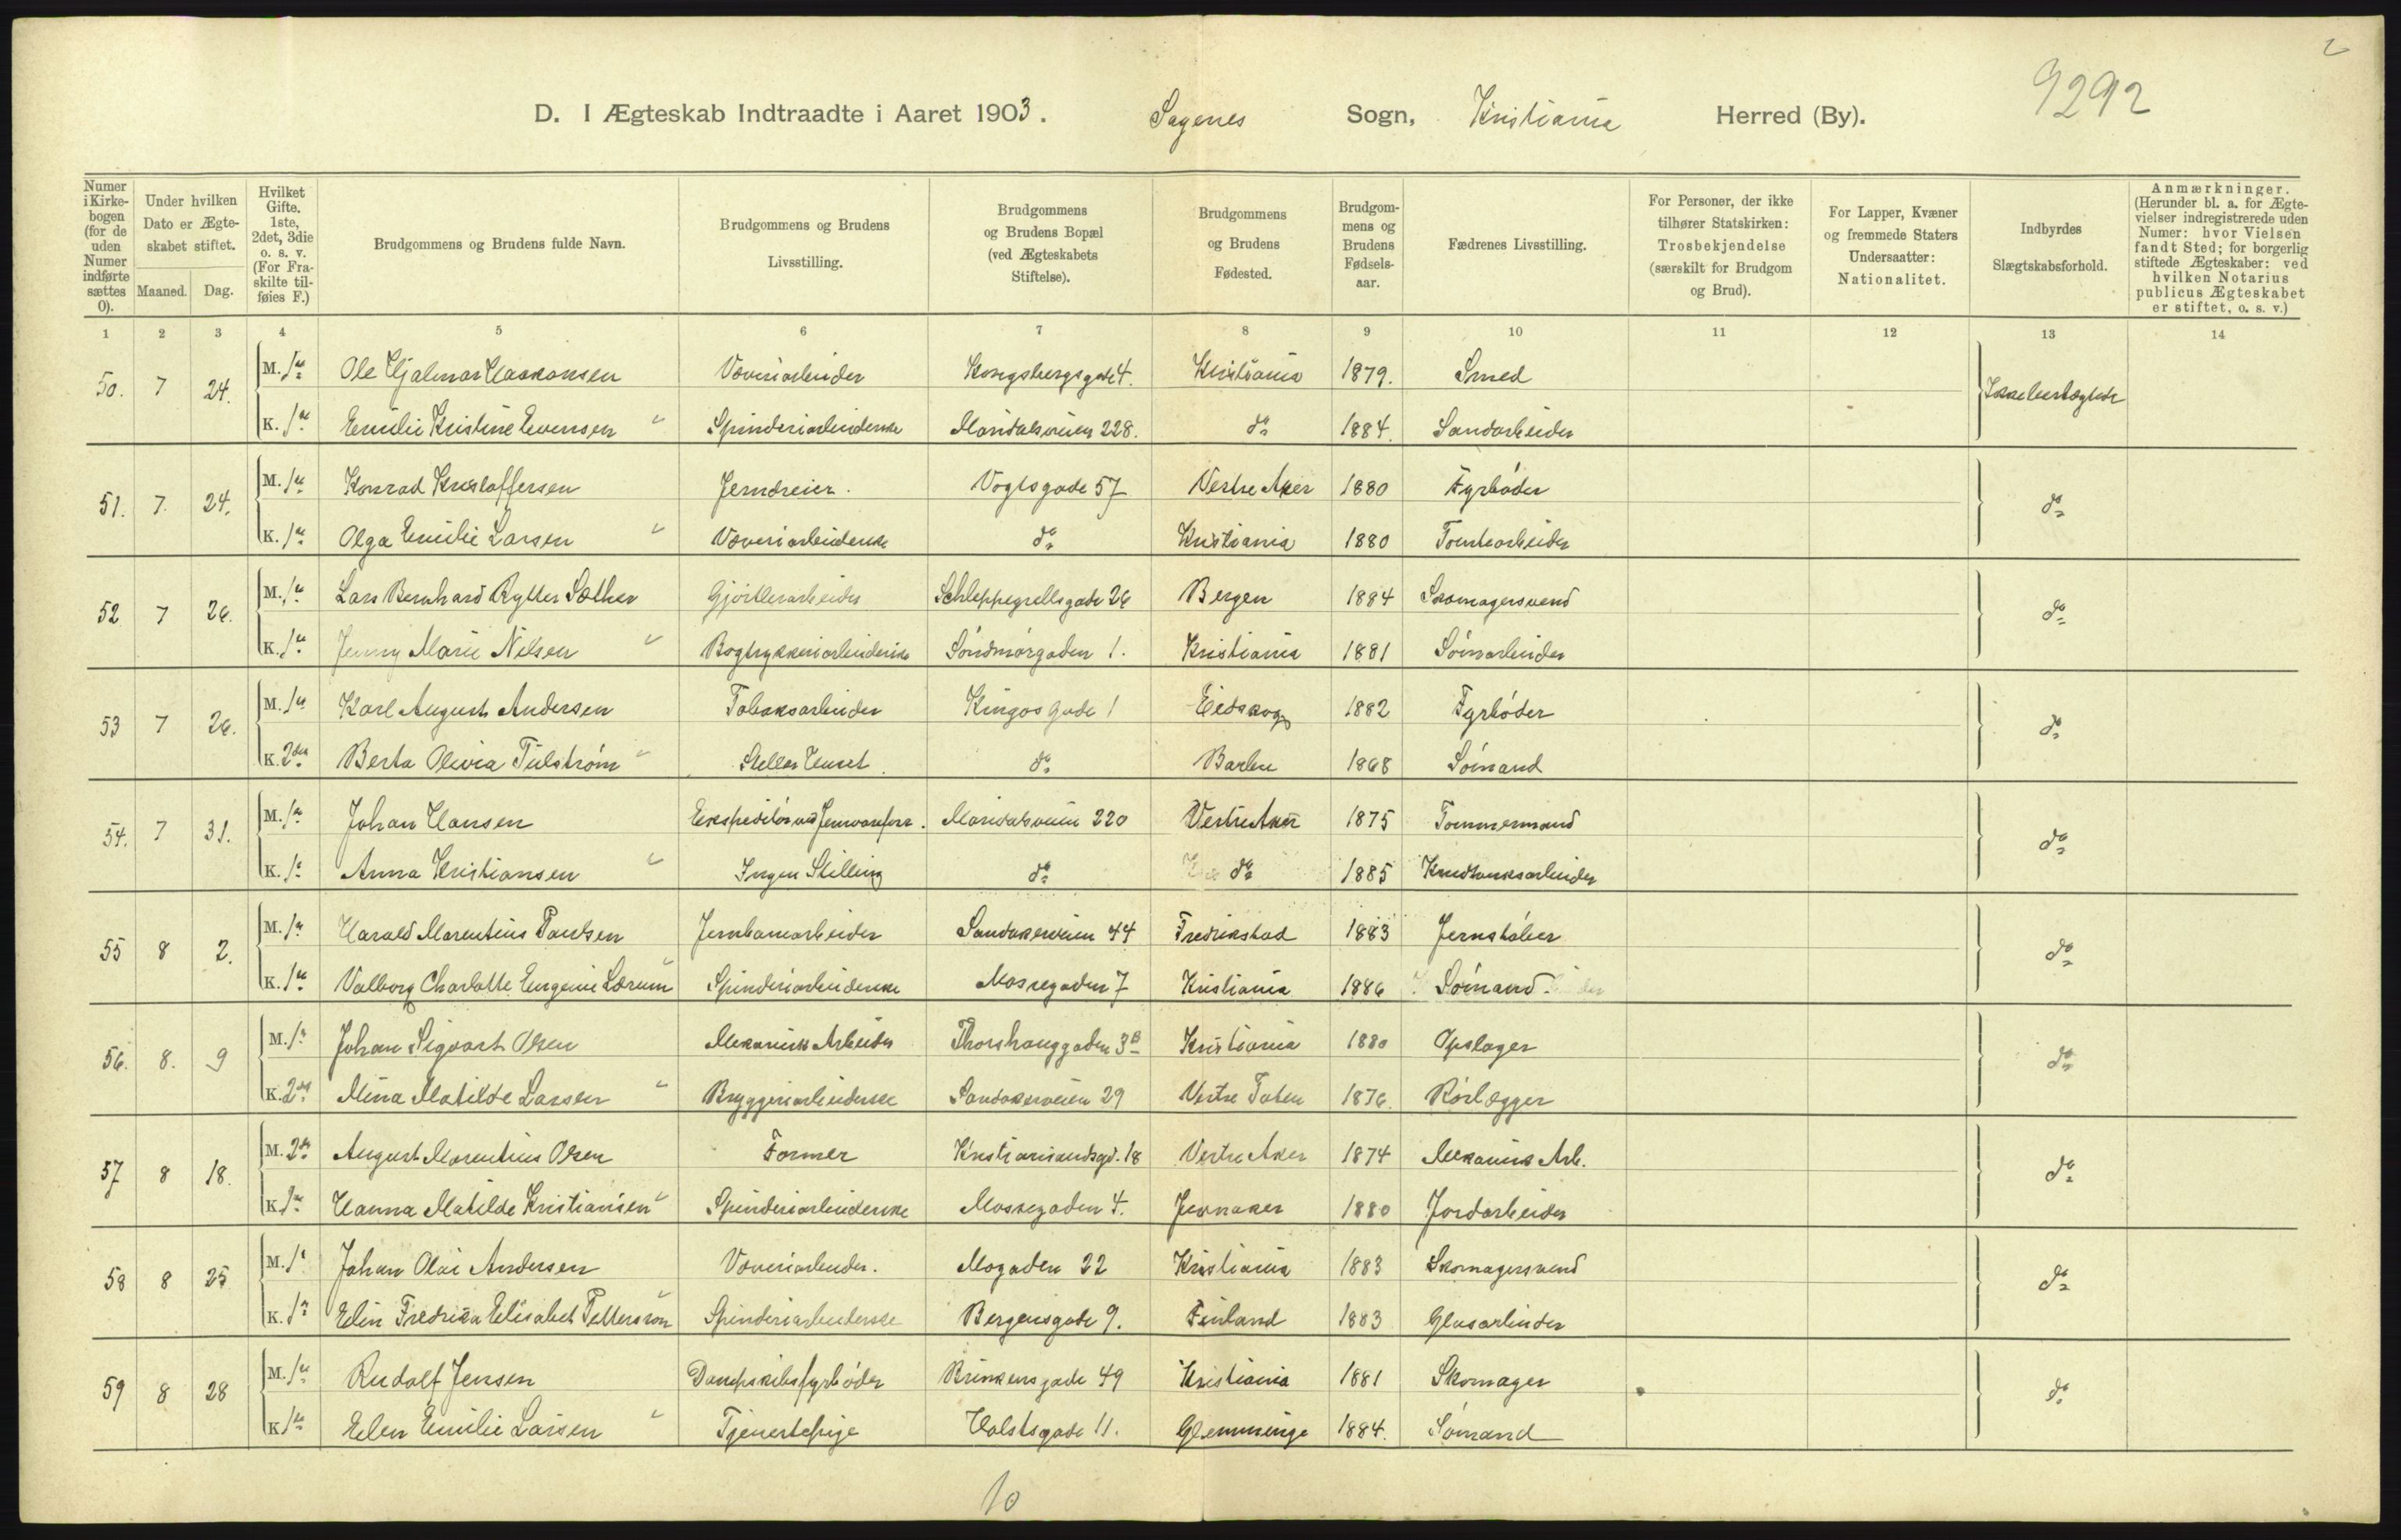 2
9292
D. I Ægteskab Indtraadte i Aaret 1903. Sagenes Sogn, Kristiania Herred (By).
Numer i Kirkebogen (for de uden Numer indførte sættes 0). Under hvilken Dato er Ægteskabet stiftet. Maaned. Dag. Hvilket Gifte. 1ste, 2det, 3die o. s. v. (For Fraskilte tilføies F.) Brudgommens og Brudens fulde Navn. Brudgommens og Brudens Livsstilling. Brudgommens og Brudens Bopæl (ved Ægteskabets Stiftelse). Brudgommens og Brudens Fødested. Brudgommens og Brudens Fødselsaar. Fædrenes Livsstilling. For Personer, der ikke tilhører Statskirken: Trosbekjendelse (særskilt for Brudgom og Brud). For Lapper, Kvæner og fremmede Staters Undersaatter: Nationalitet. Indbyrdes Slægtskabsforhold. Anmærkninger. (Herunder bl. a. for Ægtevielser indregistrerede uden Numer: hvor Vielsen fandt Sted; for borgerlig stiftede Ægteskaber: ved hvilken Notarius publicus Ægteskabet er stiftet, o. s. v.)
1 2 3 4 5 6 7 8 9 10 11 12 13 14
50. 7 24. M. 1ste Ole Hjalmar Haakonsen Væveriarbeider Kongsbergsgade 4. Kristiania 1879. Smed Ikke beslægtede
K. 1ste Emilie Kristine Evensen Spinderiarbeiderske Maridalsveien 228. do 1884. Sandarbeider
51. 7. 24. M. 1ste Konrad Kristoffersen Jerndreier. Vogtsgade 57 Vestre Aker 1880 Fyrbøder do
K. 1ste Olga Emilie Larsen Væveriarbeiderske do Kristiania 1880 Tomtearbeider
52 7 26. M. 1ste Lars Bernhard Rytter Sæther Gjørtlerarbeider Schleppegrellsgade 26 Bergen 1884 Skomagersvend do
K. 1ste Jenny Marie Nilsen Bogtrykkeriarbeiderske Søndmørgaden 1. Kristiania 1881 Søinarbeider
53 7 26. M. 1ste Karl August Andersen Tobaksarbeider Kingos Gade 1 Eidskog 1882 Fyrbøder do
K. 2det Berta Olivia Tulstrøm Steller Huset do Barbu 1868 Sømand
54. 7 31. M. 1ste Johan Hansen Ekspeditør ved Jernvareforr. Maridalsveien 220 Vestre Aker 1875 Tømmermand do
K. 1ste Anna Kristiansen Ingen Stilling do do 1885 Krudtværksarbeider
55 8 2. M. 1ste Harald Marentius Paulsen Jernbanearbeider Sandakerveien 44 Fredrikstad 1883 Jernstøber do
K. 1ste Valborg Charlotte Eugenie Lærum Spinderiarbeiderske Mossegaden 7 Kristiania 1886 Sømand
56. 8. 9 M. 1ste Johan Sigvart Olsen Mekanisk Arbeider Thorshauggaden 3B Kristiania 1880 Opslager do
K. 2det Mina Matilde Larsen Bryggeriarbeiderske Sandakerveien 29 Vestre Toten 1876. Rørlægger
57 8 18. M. 2det August Marentius Olsen Former Kristiansandsgd. 18 Vestre Aker 1874 Mekanisk Arb. do
K. 1ste Hanna Matilde Kristiansen Spinderiarbeiderske Mossegaden 4. Jevnaker 1880 Jordarbeider
58 8 25 M. 1ste Johan Olai Andersen Væveriarbeider. Mogaden 22 Kristiania 1883 Skomagersvend do
K. 1ste Elin Fredrika Elisabet Pettersson Spinderiarbeiderske Bergensgade 9. Finland 1883 Glasarbeider
59 8 28 M. 1ste Rudolf Jensen Dampskibsfyrbøder Brinkensgade 49 Kristiania 1881 Skomager do
K. 1ste Elen Emilie Larsen Tjenestepige Holstsgade 11. Glemminge 1884. Sømand
10